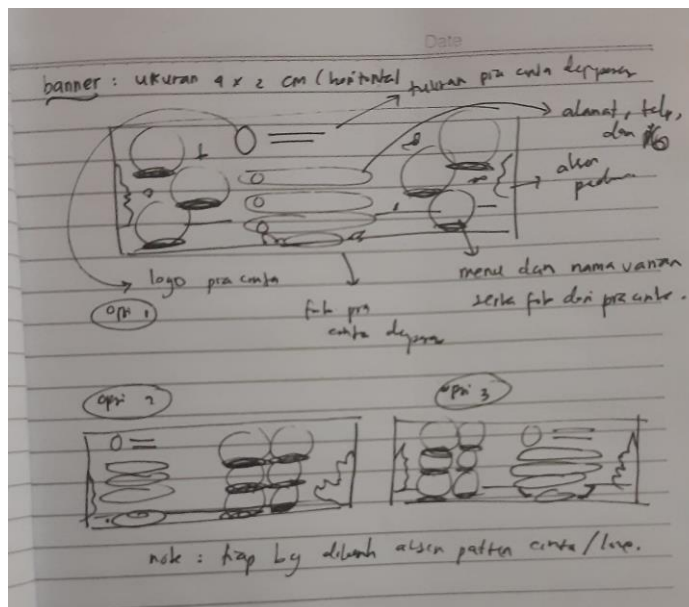 Date
banner : ukuran 4 x 2 cm (horitontal
tulisan piza cinta depasar
alamat, telp,
dan
aksen
logo piza cinta
menu dan nama varian
serta foto dari piza
opsi 1
foto piza
cinta
opsi 2
opsi 3
note : tiap bg aksen pattern cinta/love.